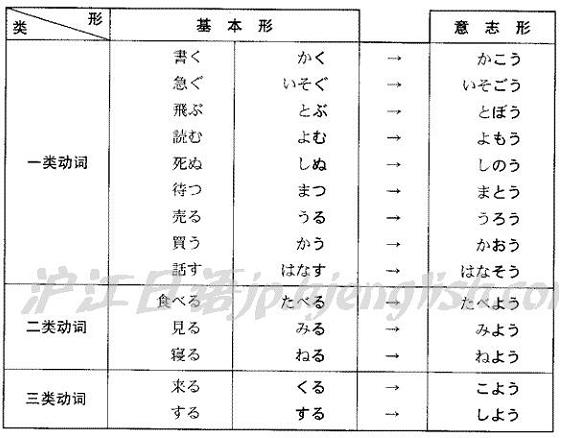 形
类 基本形 意志形
書く かく → かこう
急ぐ いそぐ → いそごう
飛ぶ とぶ → とぼう
読む よむ → よもう
一类动词 死ぬ しぬ → しのう
待つ まつ → まとう
売る うる → うろう
買う かう → かおう
話す はなす → はなそう
沪江日语jp.hjenglish.com
食べる たべる → たべよう
二类动词 見る みる → みよう
寝る ねる → ねよう
来る くる → こよう
三类动词 する する → しよう